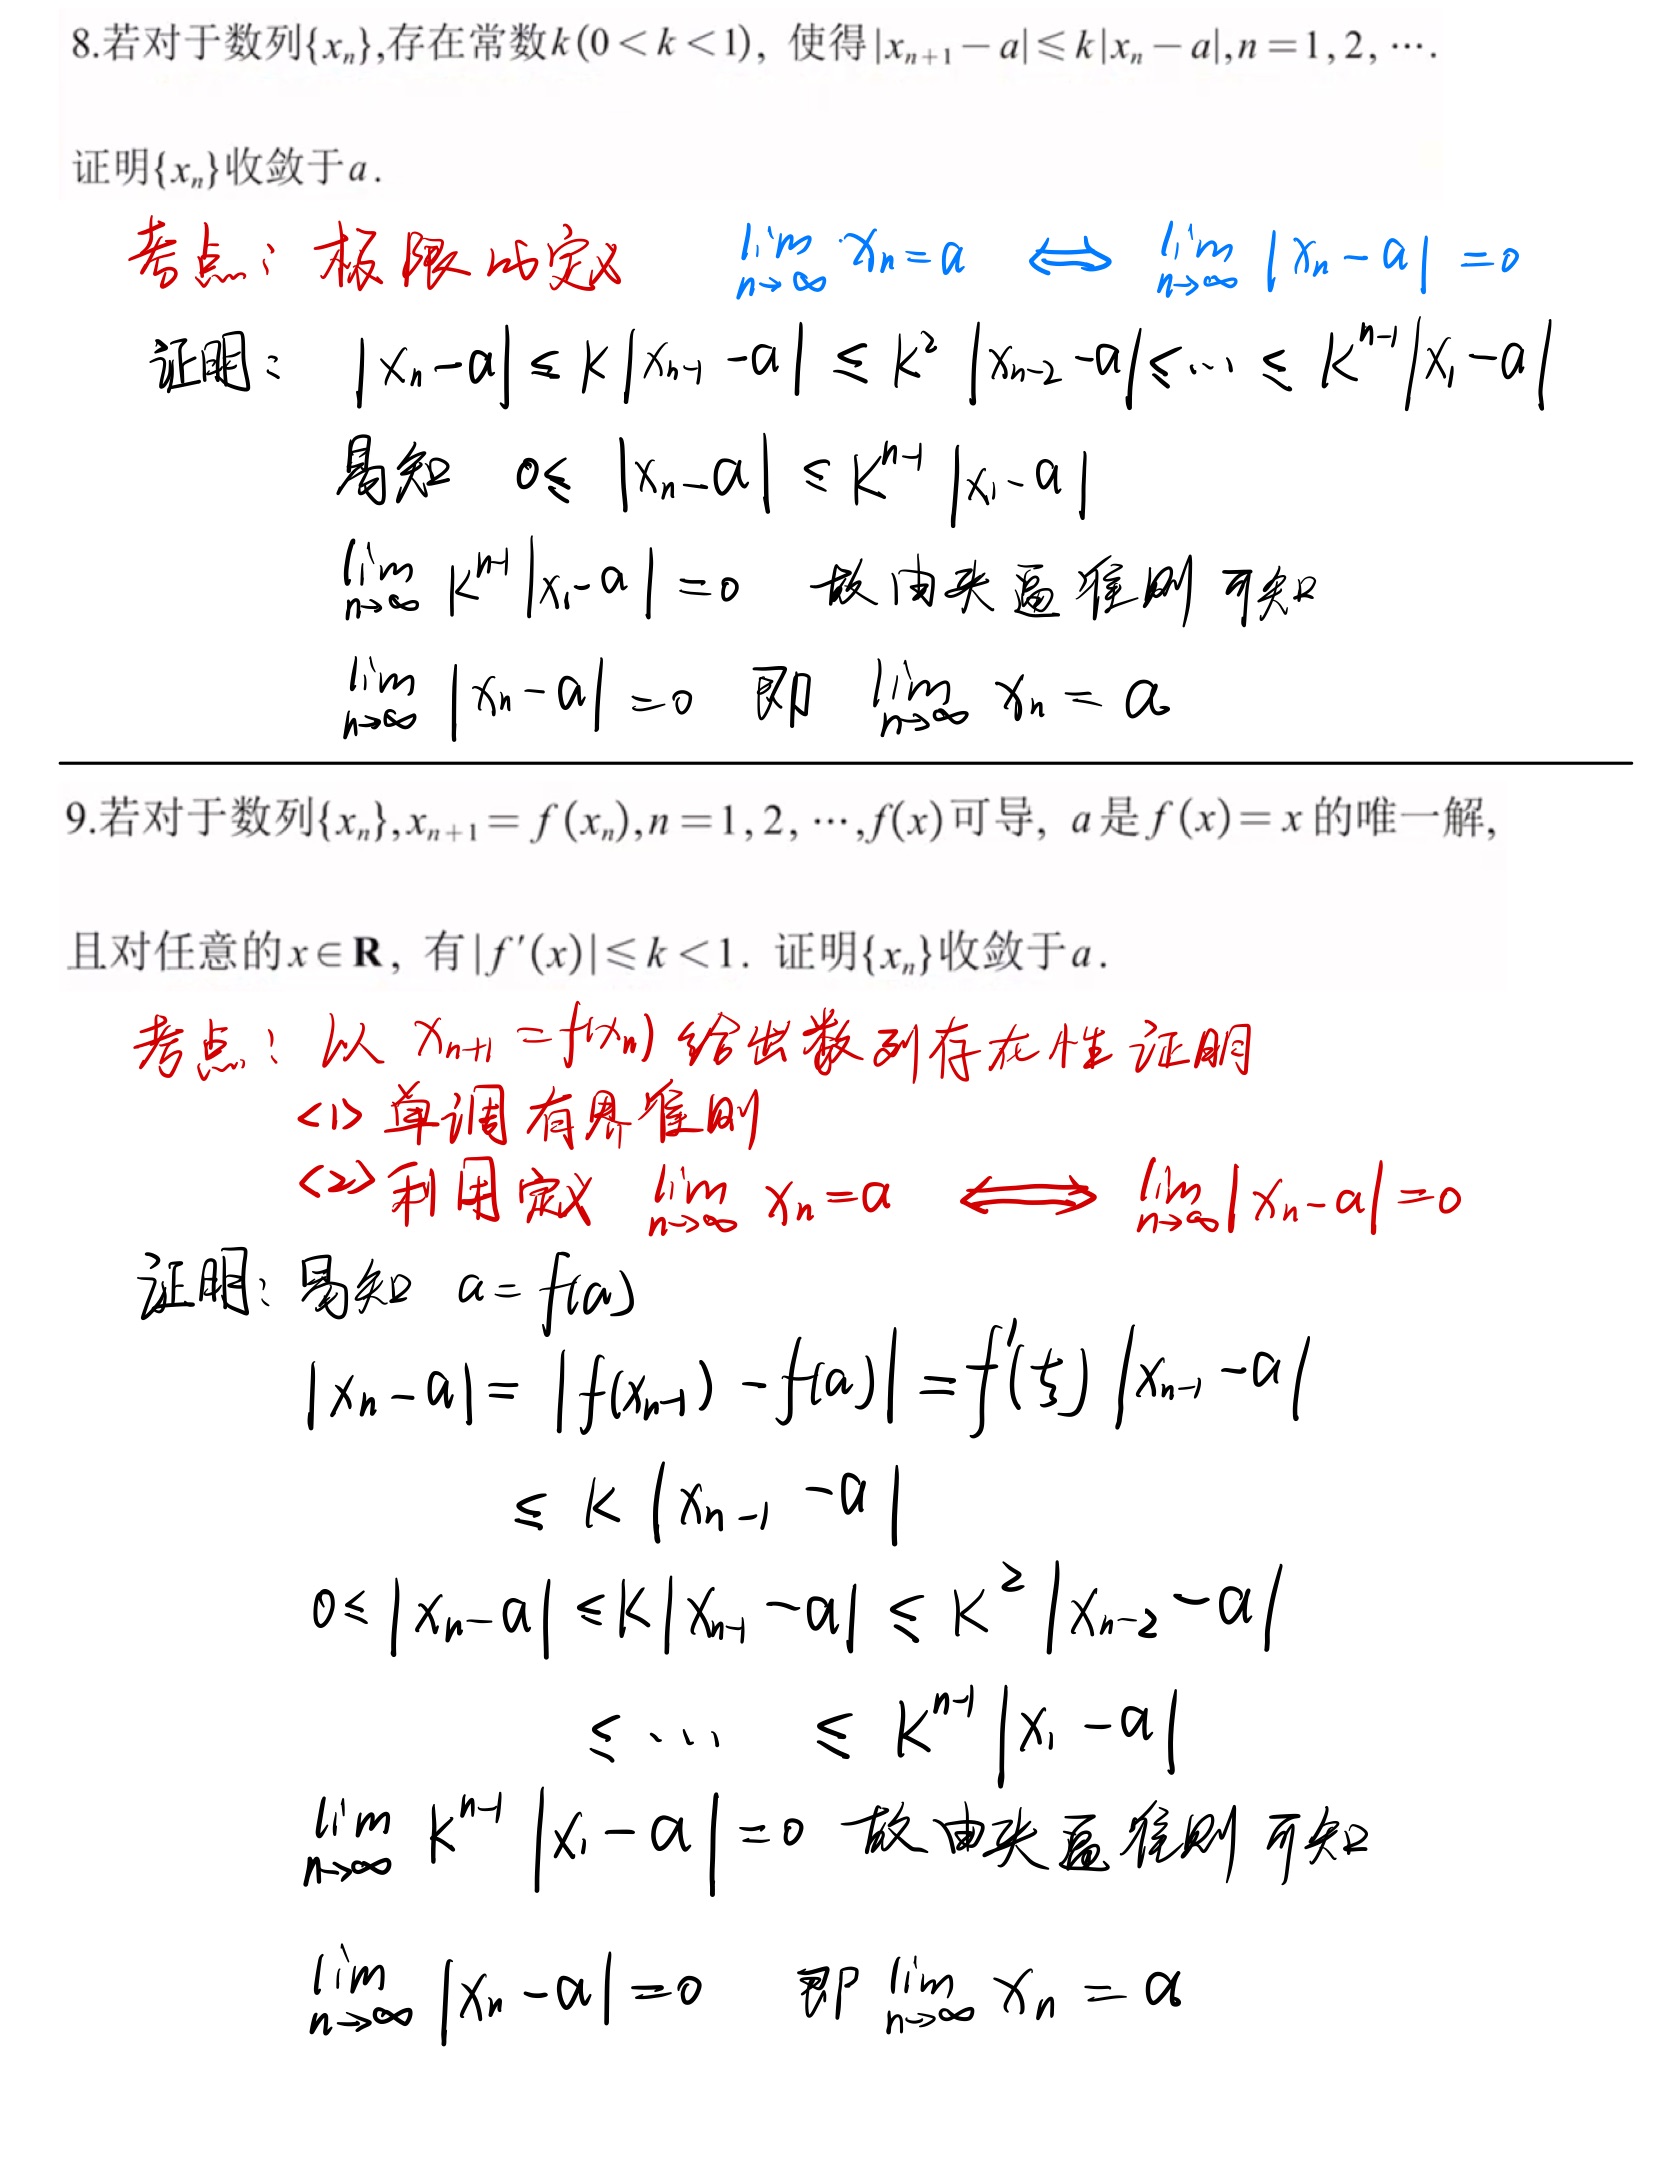 8.若对于数列{xₙ},存在常数k(0<k<1), 使得|xₙ₊₁－a|≤k|xₙ－a|,n=1,2,⋯.
证明{xₙ}收敛于a.
考点：极限的定义 lim_{n→∞} xₙ=a ⟺ lim_{n→∞} |xₙ-a|=0
证明： |xₙ-a|≤K|xₙ₋₁-a|≤K²|xₙ₋₂-a|≤⋯≤Kⁿ⁻¹|x₁-a|
易知 0≤|xₙ-a|≤Kⁿ⁻¹|x₁-a|
lim_{n→∞} Kⁿ⁻¹|x₁-a|=0 故由夹逼准则可知
lim_{n→∞} |xₙ-a|=0 即 lim_{n→∞} xₙ=a
9.若对于数列{xₙ},xₙ₊₁=f(xₙ),n=1,2,⋯,f(x)可导, a是f(x)=x的唯一解,
且对任意的x∈R, 有|f′(x)|≤k<1. 证明{xₙ}收敛于a.
考点：以 xₙ₊₁=f(xₙ) 给出数列存在性证明
<1> 单调有界准则
<2> 利用定义 lim_{n→∞} xₙ=a ⟺ lim_{n→∞}|xₙ-a|=0
证明：易知 a=f(a)
|xₙ-a|=|f(xₙ₋₁)-f(a)|=f′(ξ)|xₙ₋₁-a|
≤K|xₙ₋₁-a|
0≤|xₙ-a|≤K|xₙ₋₁-a|≤K²|xₙ₋₂-a|
≤⋯ ≤Kⁿ⁻¹|x₁-a|
lim_{n→∞} Kⁿ⁻¹|x₁-a|=0 故由夹逼准则可知
lim_{n→∞} |xₙ-a|=0 即 lim_{n→∞} xₙ=a